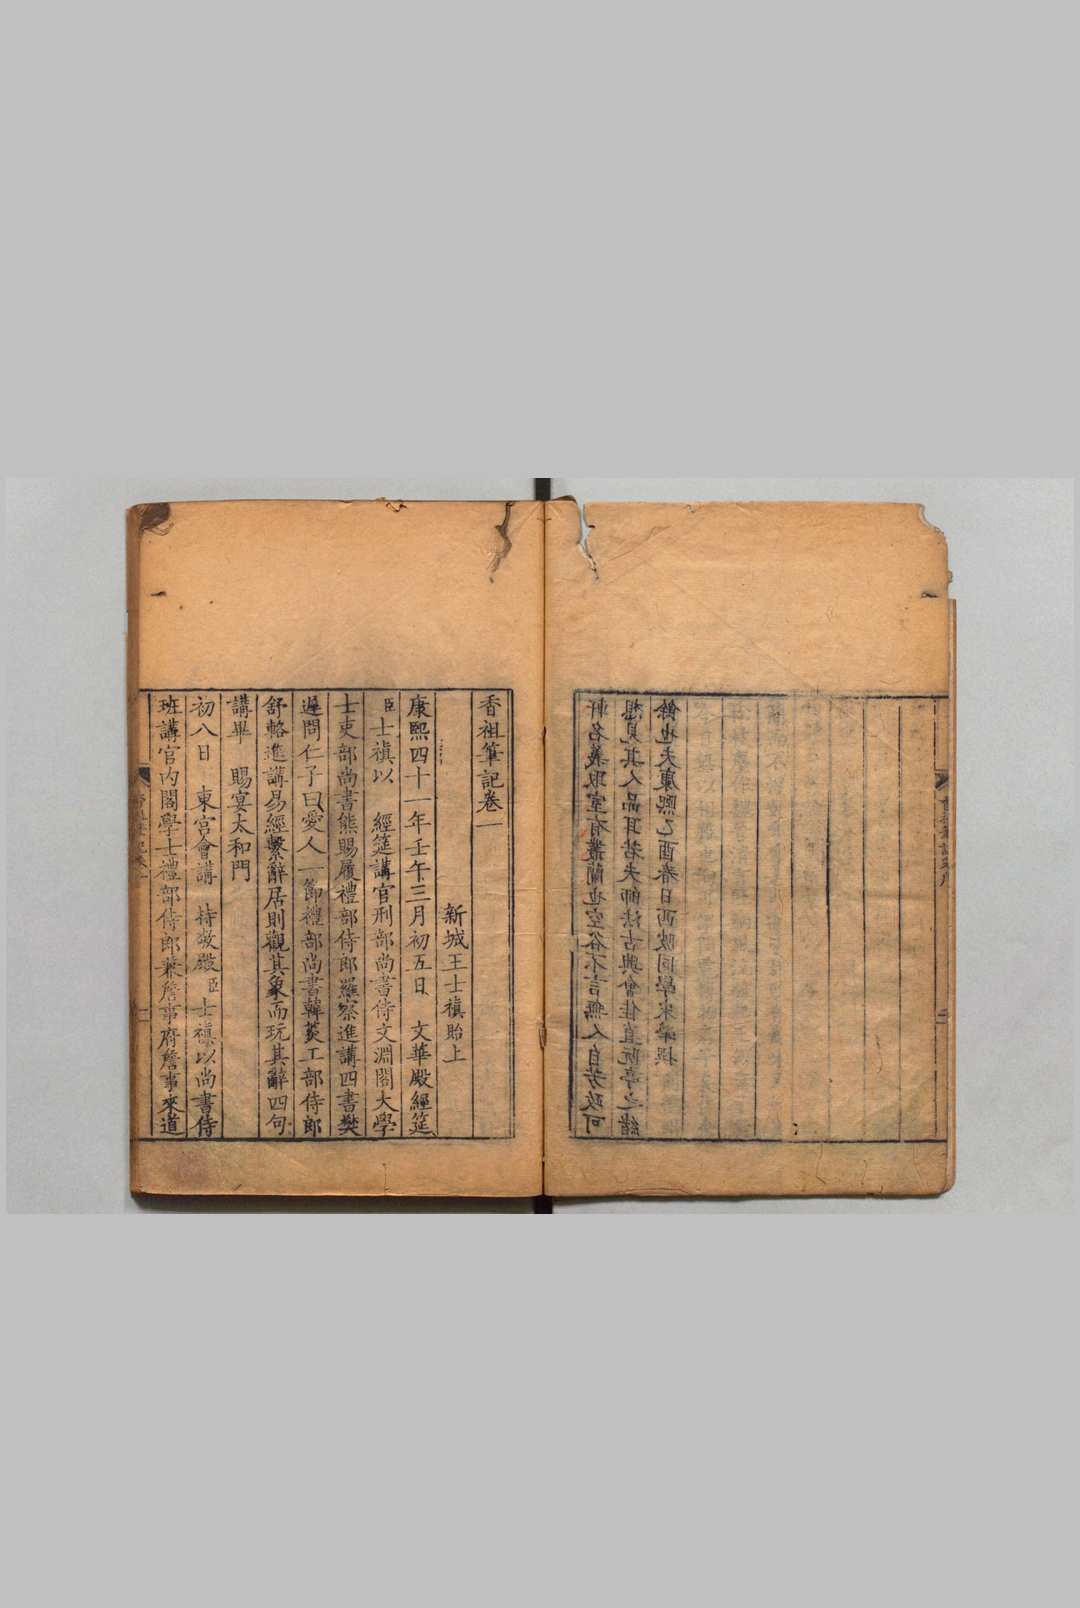 軒名義取室有叢蘭也空谷不言無人自芳政可
想見其人品耳若夫師法古興會佳直阮亭之緒
餘也夫康熙乙酉春日西陂同學宋犖撰
香祖筆記卷一
新城王士禛貽上
康熙四十一年壬午三月初五日 文華殿經筵
臣士禛以 經筵講官刑部尚書侍文淵閣大學
士吏部尚書熊賜履禮部侍郎羅察進講四書樊
遲問仁子曰愛人一節禮部尚書韓菼工部侍郎
舒輅進講易經繫辭居則觀其象而玩其辭四句
講畢 賜宴太和門
初八日 東宮會講 持敬殿臣士禛以尚書侍
班講官內閣學士禮部侍郎兼詹事府詹事來道